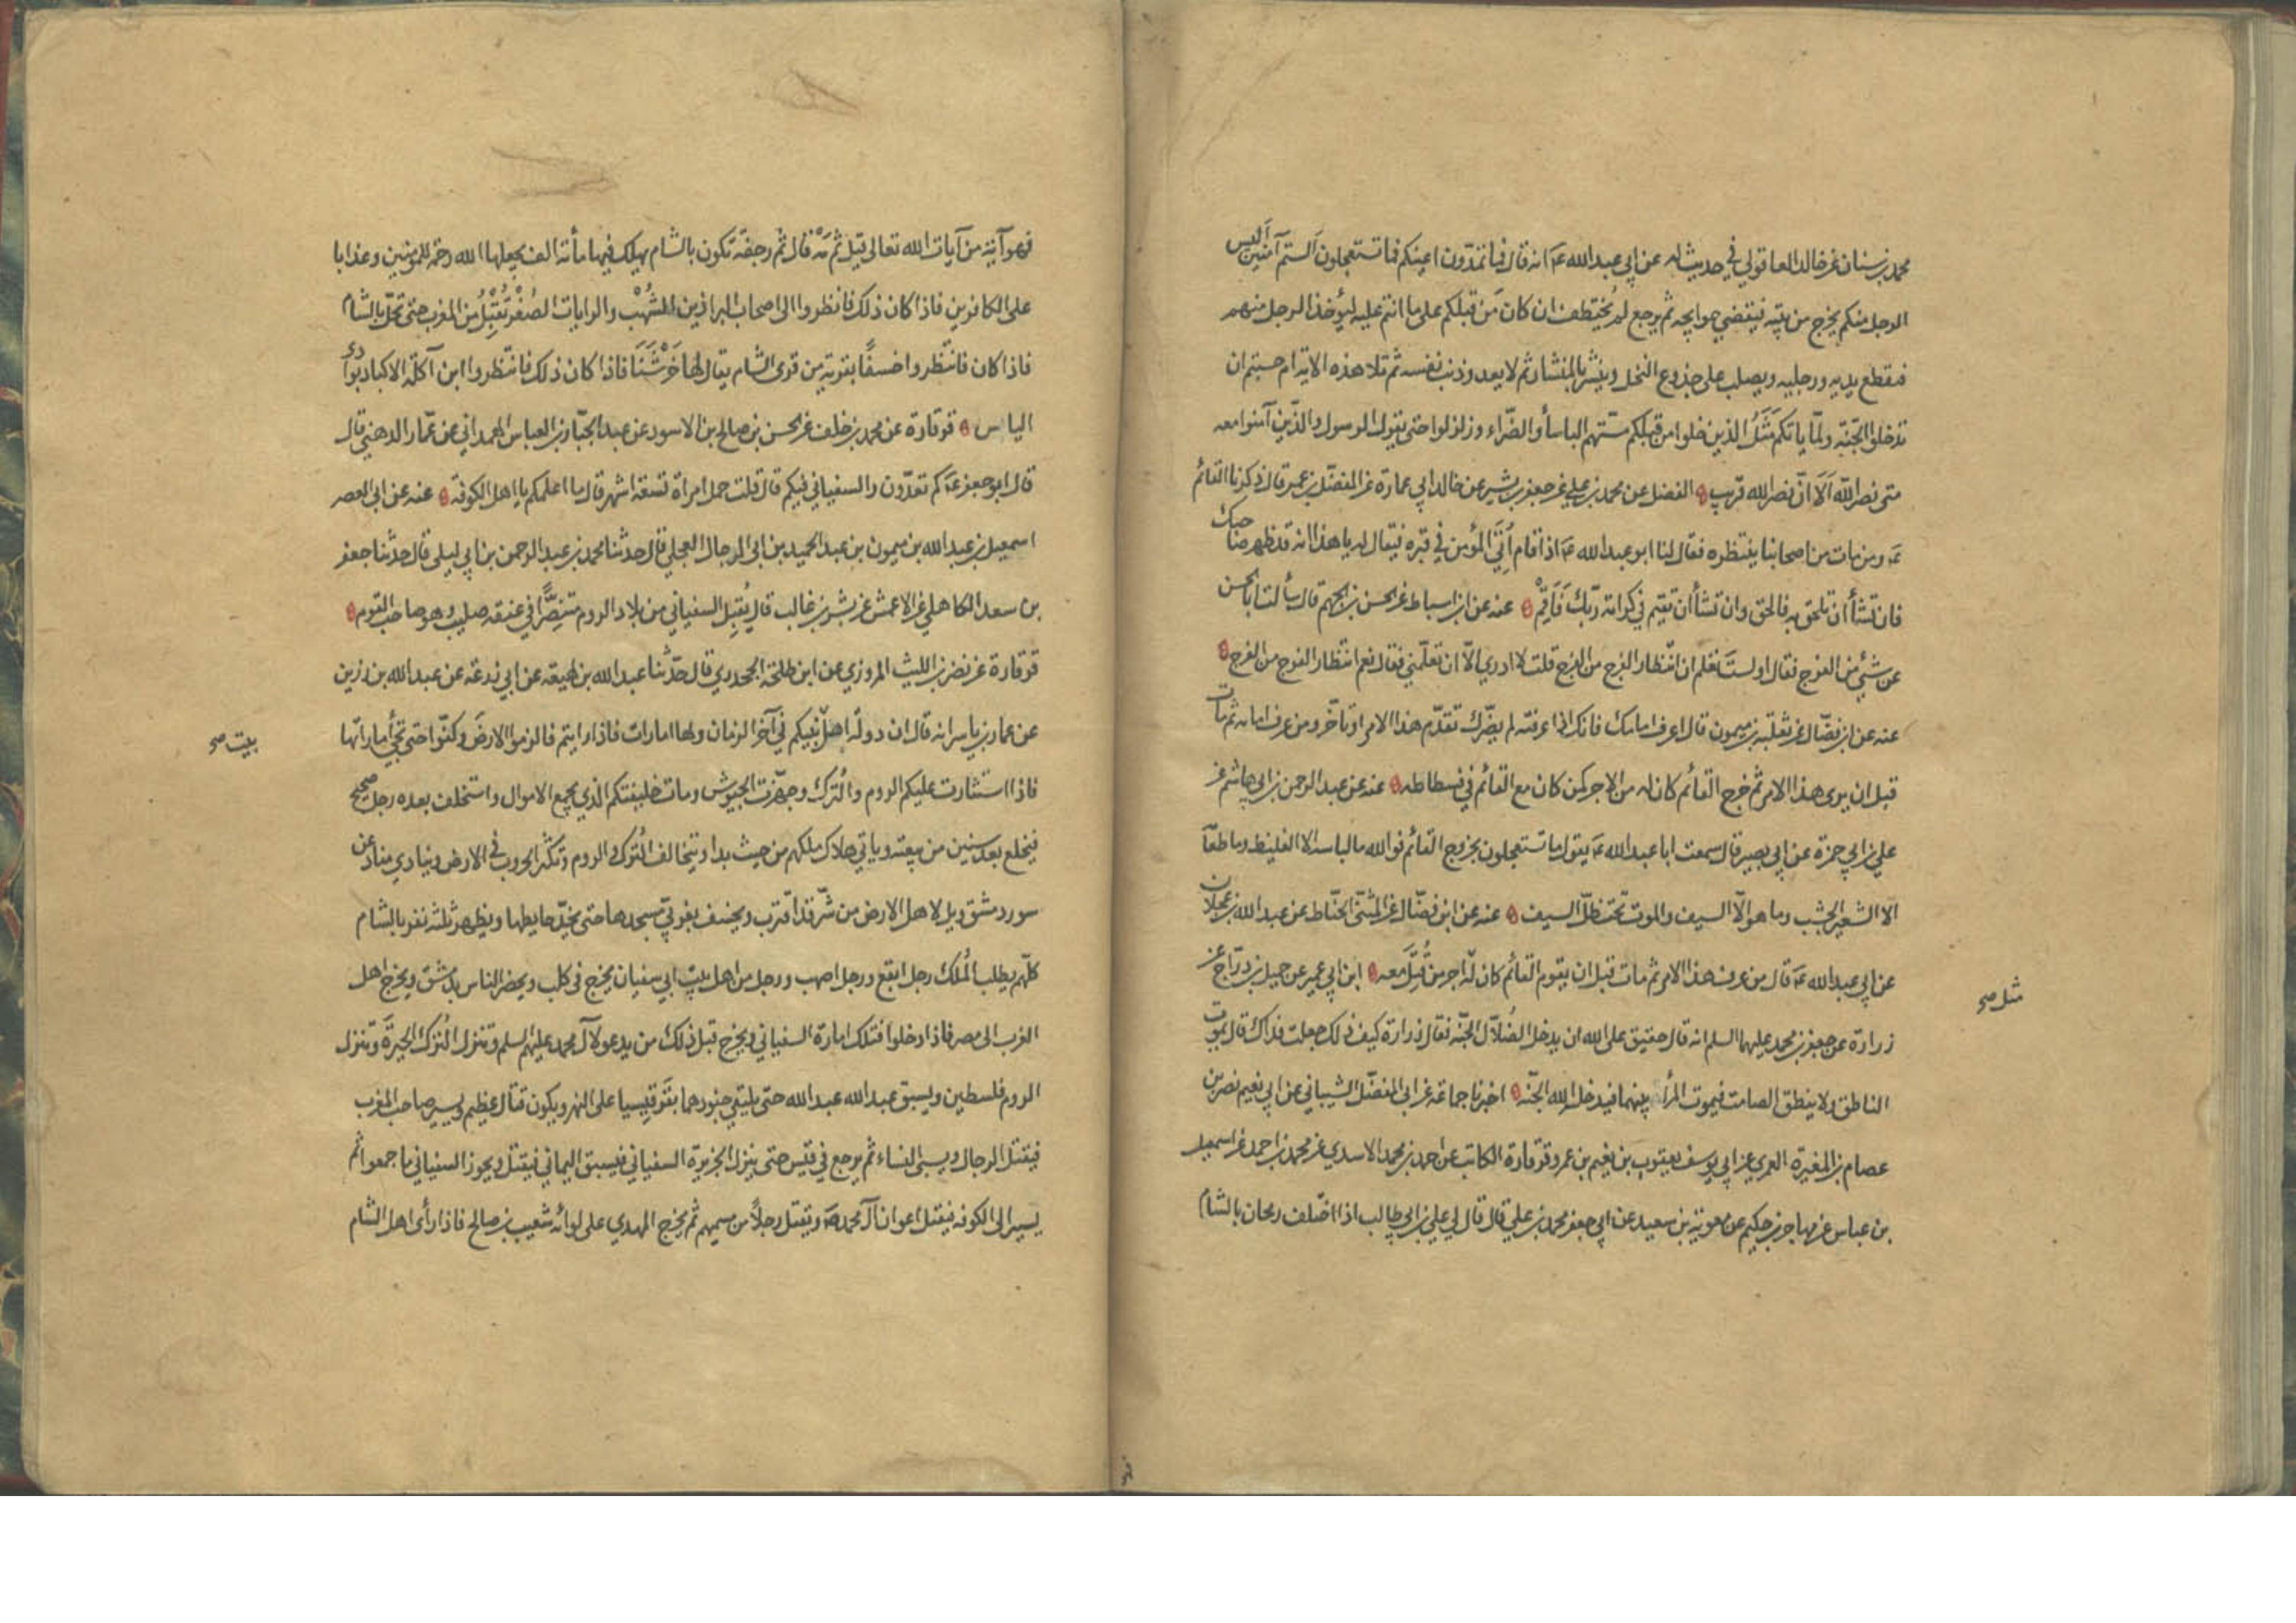 محمد بن سنان عن خالد العاقولي في حديث له عن ابي عبد الله عه انه قال فما تمدّون اعينكم فما تستعجلون ألستم آمنين أليس
الرجل منكم يخرج من بيته فيقضي حوايجه ثم يرجع لم يختطف ان كان مَن قبلكم على ما انتم عليه ليؤخذ الرجل منهم
فيقطع يديه ورجليه ويصلب على جذوع النخل وينشر بالمنشار ثم لا يعدو ذنب نفسه ثم تلا هذه الاية ام حسبتم ان
تدخلوا الجنّة ولمّا ياتكم مَثَلُ الذين خلوا من قبلكم مسّتهم الباسأ والضّراء وزلزلوا حتى يقول الرسول والذين آمنوا معه
متى نصر الله اَلَا انّ نصر الله قريب الفضل عن محمد بن علي عن جعفر بن بشير عن خالد ابي عمارة عن المفضّل بن عمر قال ذكرنا القائم
عه ومن مات من اصحابنا ينتظره فقال لنا ابو عبد الله عه اذا قام اُتي المؤمن في قبره فيقال له يا هذا انه قد ظهر صاحبك
فان تشأ ان تلحق به فالحق وان تشأ ان تقيم في كرامة ربّك فَاَقِمْ عنه عن ابن اسباط عن الحسن بن الجهم قال سألت ابا الحسن
عن شئ من الفرج فقال او لستَ تعلم ان انتظار الفرج من الفرج قلت لا ادري الّا ان تعلّمني فقال نعم انتظار الفرج من الفرج
عنه عن ابن فضّال عن ثعلبة بن ميمون قال اعرف امامك فانك اذا عرفته لم يضّرك تقدّم هذا الامر او تاخّر ومن عرف امامه ثم مات
قبل ان يرى هذا الامر ثم خرج القائم كان له من الاجر كمن كان مع القائم في فسطاطه عنه عن عبد الرحمن بن ابي هاشم عن
علي بن ابي حمزة عن ابي بصير قال سمعت ابا عبد الله عه يقول ما تستعجلون بخروج القائم فو الله ما لباسه الا الغليظ وما طعامه
الا الشعير الجشب وما هو الّا السيف والموت تحت ظلّ السيف عنه عن ابن فضّال عن المثنّى الحنّاط عن عبد الله بن عجلان
عن ابي عبد الله عه قال من عرف هذا الامر ثم مات قبل ان يقوم القائم كان له اجر من قُتِلَ معه ابن ابي عمير عن جميل بن درّاج عن
زرارة عن جعفر بن محمد عليهما السلم انه قال حقيق على الله ان يدخل الضُلّال الجنّة فقال زرارة كيف ذلك جعلت فداك قال يموت
الناطق ولا ينطق الصامت فيموت المرأ بينهما فيدخله الله الجنّة اخبرنا جماعة عن ابي المفضّل الشيباني عن ابي نعيم نصر بن
عصام بن المغيرة العمري عن ابي يوسف يعقوب بن نعيم بن عمرو قرقارة الكاتب عن احمد بن محمد الاسدي عن محمد بن احمد عن اسمعيل
بن عباس عن مهاجر بن حكيم عن معوية بن سعيد عن ابي جعفر محمد بن علي قال قال لي علي بن ابي طالب اذا اختلف رمحان بالشام
مثل صح
فهو آية من آيات الله تعالى قيل ثم مَهْ قال ثم رجفة تكون بالشام يهلك فيها مأئة الف يجعلها الله رحمة للمؤمنين وعذابا
على الكافرين فاذا كان ذلك فانظروا الى اصحاب البراذين الشُهْب والرايات الصُفْر تُقبِلُ من المغرب حتى تحلّ بالشام
فاذا كان فانتظروا خسفًا بقرية من قرى الشام يقال لها خَرْشَنَا فاذا كان ذلك فانتظروا ابن آكلة الاكباد بوادي
الياس قرقارة عن محمد بن خلف عن الحسن بن صالح بن الاسود عن عبد الجبّار بن العباس الهمداني عن عمّار الدهني قال
قال ابو جعفر عه كم تعدّون السفياني فيكم قال قلت حمل امراة تسعة اشهر قال ما اعلمكم يا اهل الكوفة عنه عن ابي النصر
اسمعيل بن عبد الله بن ميمون بن عبد الحميد بن ابي الرجال العجلي قال حدثنا محمد بن عبد الرحمن بن ابي ليلى قال حدّثنا جعفر
بن سعد الكاهلي عن الاعمش عن بشر بن غالب قال يُقبِل السفياني من بلاد الروم متنصِّرًا في عنقه صليب وهو صاحب القوم
قرقارة عن نصر بن الليث المروزي عن ابن طلحة الجحدري قال حدّثنا عبد الله بن لهيعة عن ابي زرعة عن عبد الله بن رزين
عن عمار بن ياسر انه قال ان دولة اهل نبيكم في آخر الزمان ولها امارات فاذا رايتم فالزموا الارضَ وكفّوا حتى تجئ اماراتها
فاذا استثارت عليكم الروم والترك وجهّزت الجيوش ومات خليفتكم الذي يجمع الاموال واستخلف بعده رجل صحيح
فيخلع بعد سنين من بيعته وياتي هلاك ملكهم من حيث بدا ويتخالف الترك والروم وتكثر الحروب في الارض وينادي مناد عن
سور دمشق ويل لاهل الارض من شرّ قد اقترب ويخسف بغربيّ مسجدها حتى يخرّ حايطها ويظهر ثلثة نفر بالشام
كلّهم يطلب المُلك رجل ابقع ورجل اصهب ورجل من اهل بيت ابي سفيان يخرج في كلب ويحضر الناس بدمشق ويخرج اهل
الغرب الى مصر فاذا دخلوا فتلك امارة السفياني ويخرج قبل ذلك من يدعو لآل محمد عليهم السلم وتنزل التُرك الحِيرَةَ وتنزل
الروم فلسطين ويسبق عبد الله عبد الله حتّى يلتقي جنودهما بقَرقِيسيا على النهر ويكون قتال عظيم ويسير صاحب المغرب
فيقتل الرجال ويسبى النساء ثم يرجع في قيس حتى ينزل الجزيرة السفياني فيسبق اليماني فيقتل ويحوز السفياني ما جمعوا ثم
يسير الى الكوفه فيقتل اعوان آل محمد صه ويقتل رجلاً من مسميهم ثم يخرج المهدي على لوائه شعيب بن صالح فاذا رأى اهل الشام
بيت صح